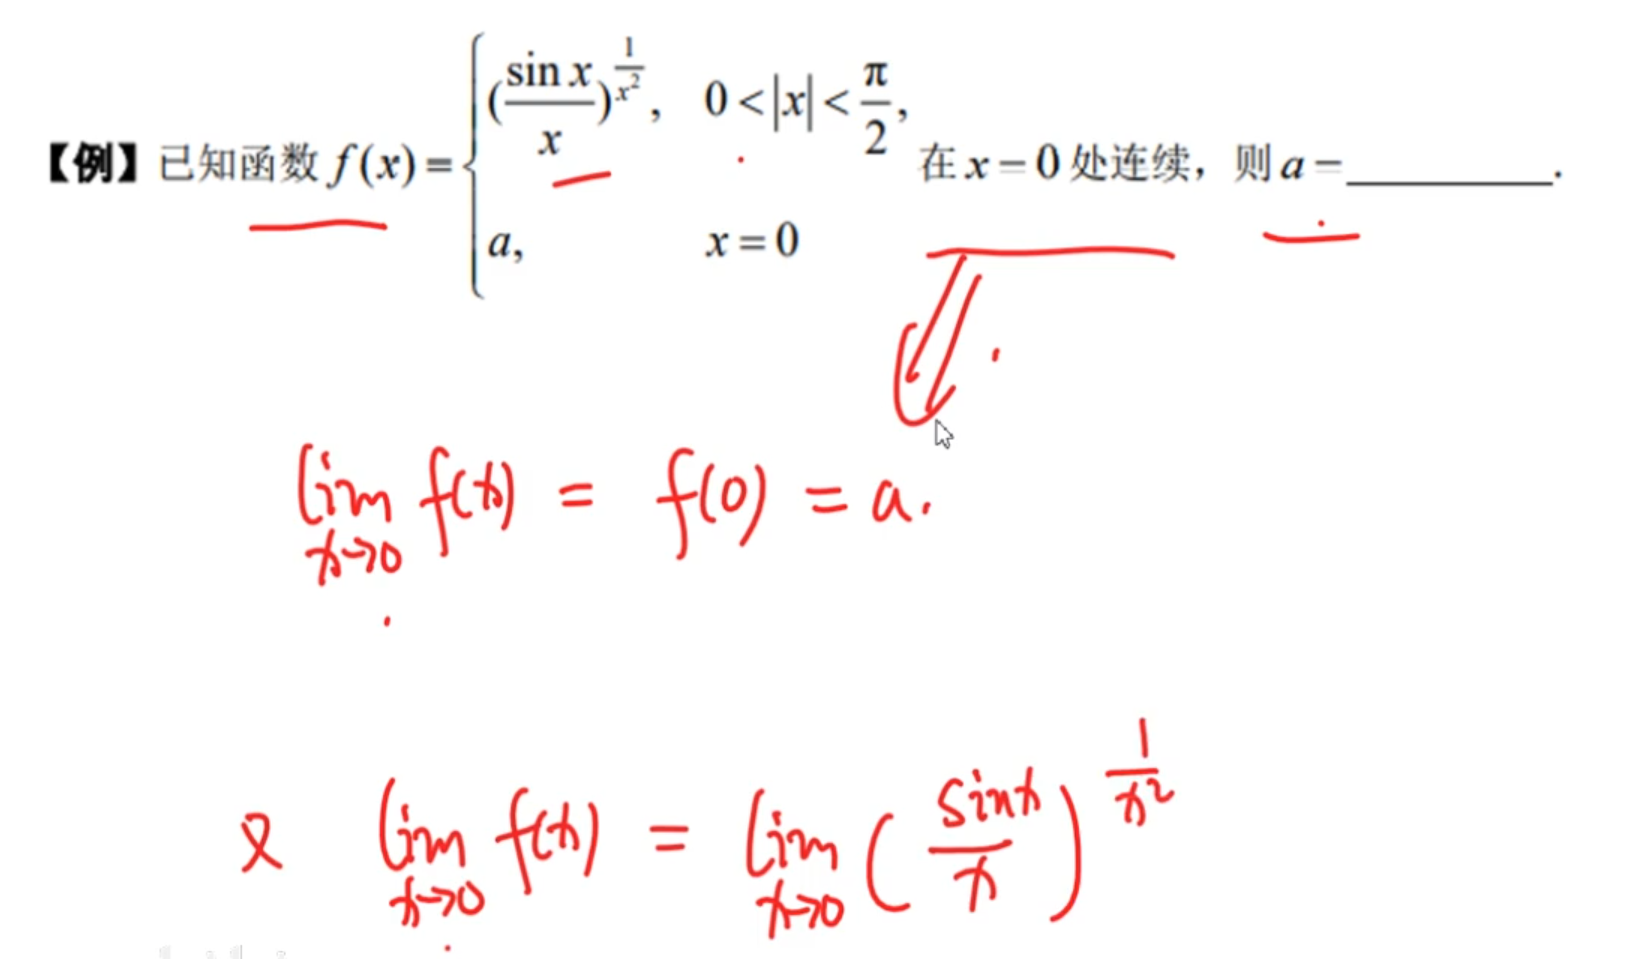 【例】已知函数 f(x) = { (sin x / x)^{1/x²}, 0 < |x| < π/2, a, x = 0 在 x = 0 处连续，则 a = ________.
lim_{x→0} f(x) = f(0) = a.
又 lim_{x→0} f(x) = lim_{x→0} (sinx / x)^{1/x²}